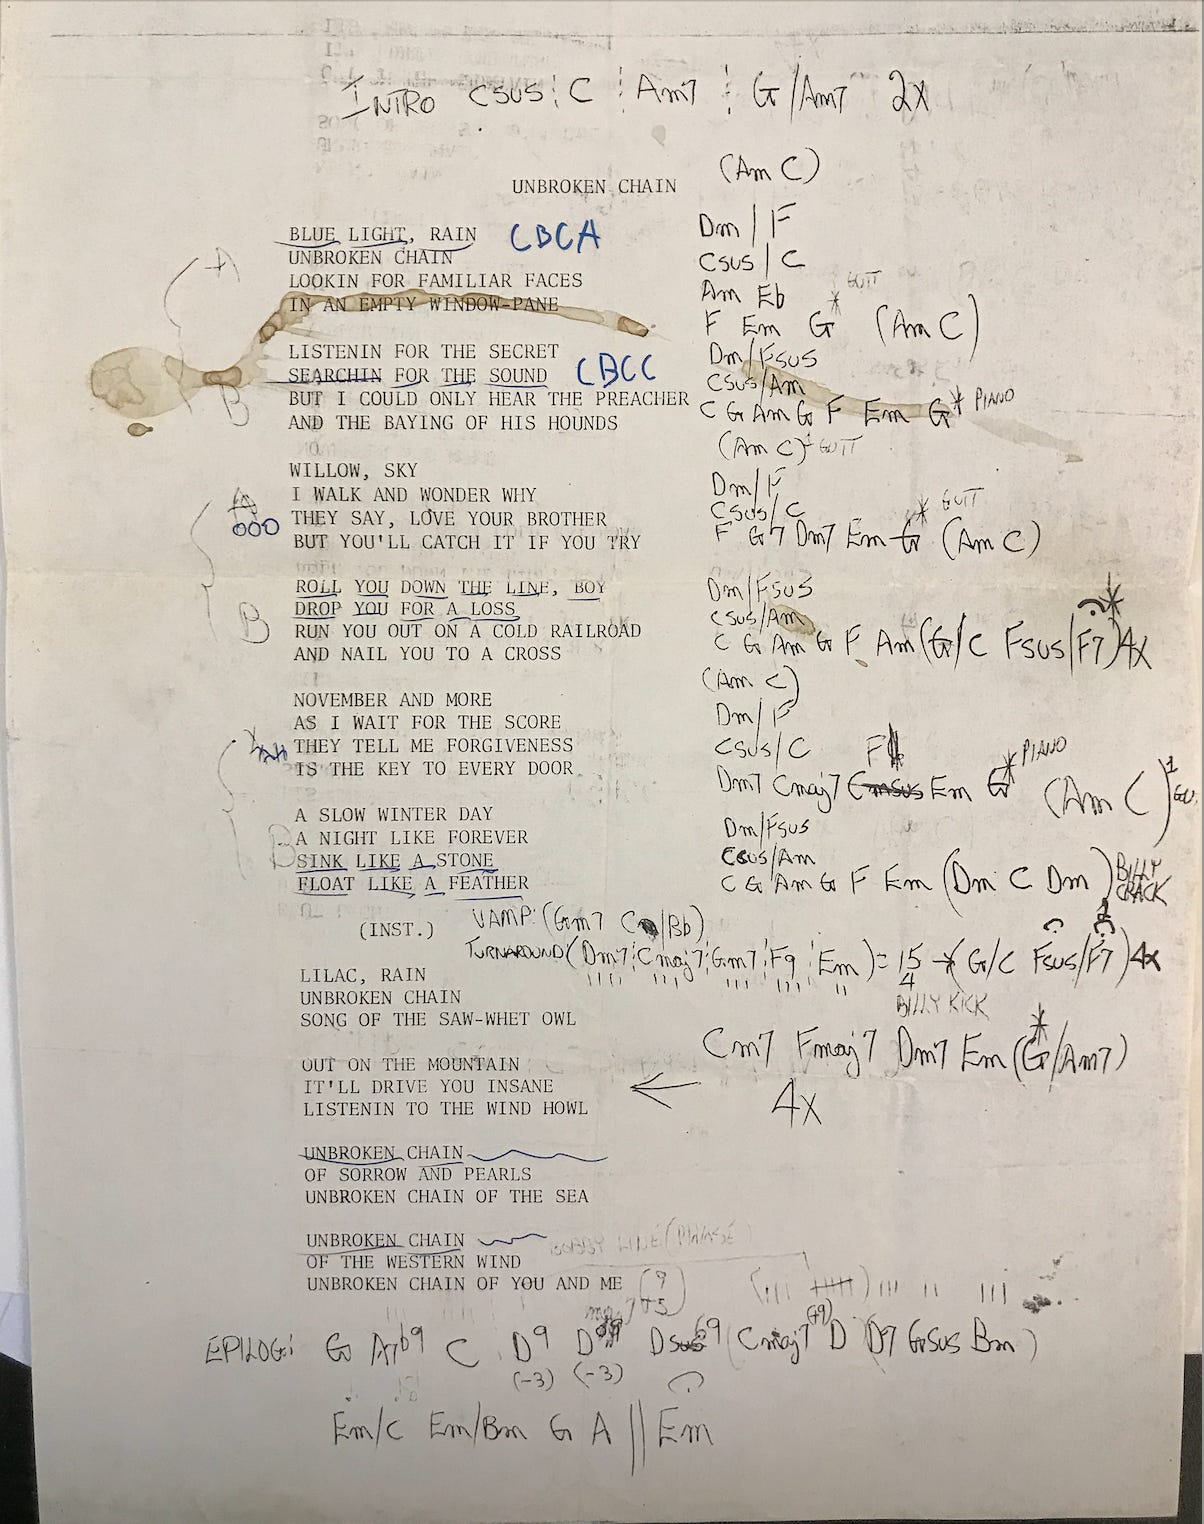 INTRO Csus ¦ C ¦ Am7 ¦ G/Am7 2x
(Am C)
UNBROKEN CHAIN
BLUE LIGHT, RAIN CBCA Dm / F
UNBROKEN CHAIN Csus / C
LOOKIN FOR FAMILIAR FACES Am Eb
IN AN EMPTY WINDOW-PANE F Em G* GUIT (Am C)
LISTENIN FOR THE SECRET Dm/Fsus
SEARCHIN FOR THE SOUND CBCC Csus/Am
BUT I COULD ONLY HEAR THE PREACHER C G Am G F Em G* PIANO
AND THE BAYING OF HIS HOUNDS
(Am C) GUIT
WILLOW, SKY Dm/F
I WALK AND WONDER WHY Csus/C
THEY SAY, LOVE YOUR BROTHER F G7 Dm7 Em G* GUIT (Am C)
BUT YOU'LL CATCH IT IF YOU TRY
ROLL YOU DOWN THE LINE, BOY Dm/Fsus
DROP YOU FOR A LOSS Csus/Am
RUN YOU OUT ON A COLD RAILROAD C G Am G F Am (G/C Fsus/F7)* 4x
AND NAIL YOU TO A CROSS
(Am C)
NOVEMBER AND MORE Dm/F
AS I WAIT FOR THE SCORE Csus/C
THEY TELL ME FORGIVENESS Dm7 Cmaj7 F Em G* PIANO (Am C)
IS THE KEY TO EVERY DOOR
A SLOW WINTER DAY Dm/Fsus
A NIGHT LIKE FOREVER Csus/Am
SINK LIKE A STONE C G Am G F Em (Dm C Dm) BILLY CRACK
FLOAT LIKE A FEATHER
(INST.) VAMP: (Gm7 C/Bb)
TURNAROUND (Dm7 ¦ Cmaj7 ¦ Gm7 ¦ F9 ¦ Em) = 15/4 → (G/C Fsus/F7) 4x
BILLY KICK
LILAC, RAIN
UNBROKEN CHAIN
SONG OF THE SAW-WHET OWL
Cm7 Fmaj7 Dm7 Em (G*/Am7)
OUT ON THE MOUNTAIN
IT'LL DRIVE YOU INSANE ← 4x
LISTENIN TO THE WIND HOWL
UNBROKEN CHAIN
OF SORROW AND PEARLS
UNBROKEN CHAIN OF THE SEA
UNBROKEN CHAIN
OF THE WESTERN WIND
UNBROKEN CHAIN OF YOU AND ME
EPILOG: G A7b9 C D9 (-3) D (-3) Dsus (Cmaj7 D D7 Gsus Bm)
Em/C Em/Bm G A || Em